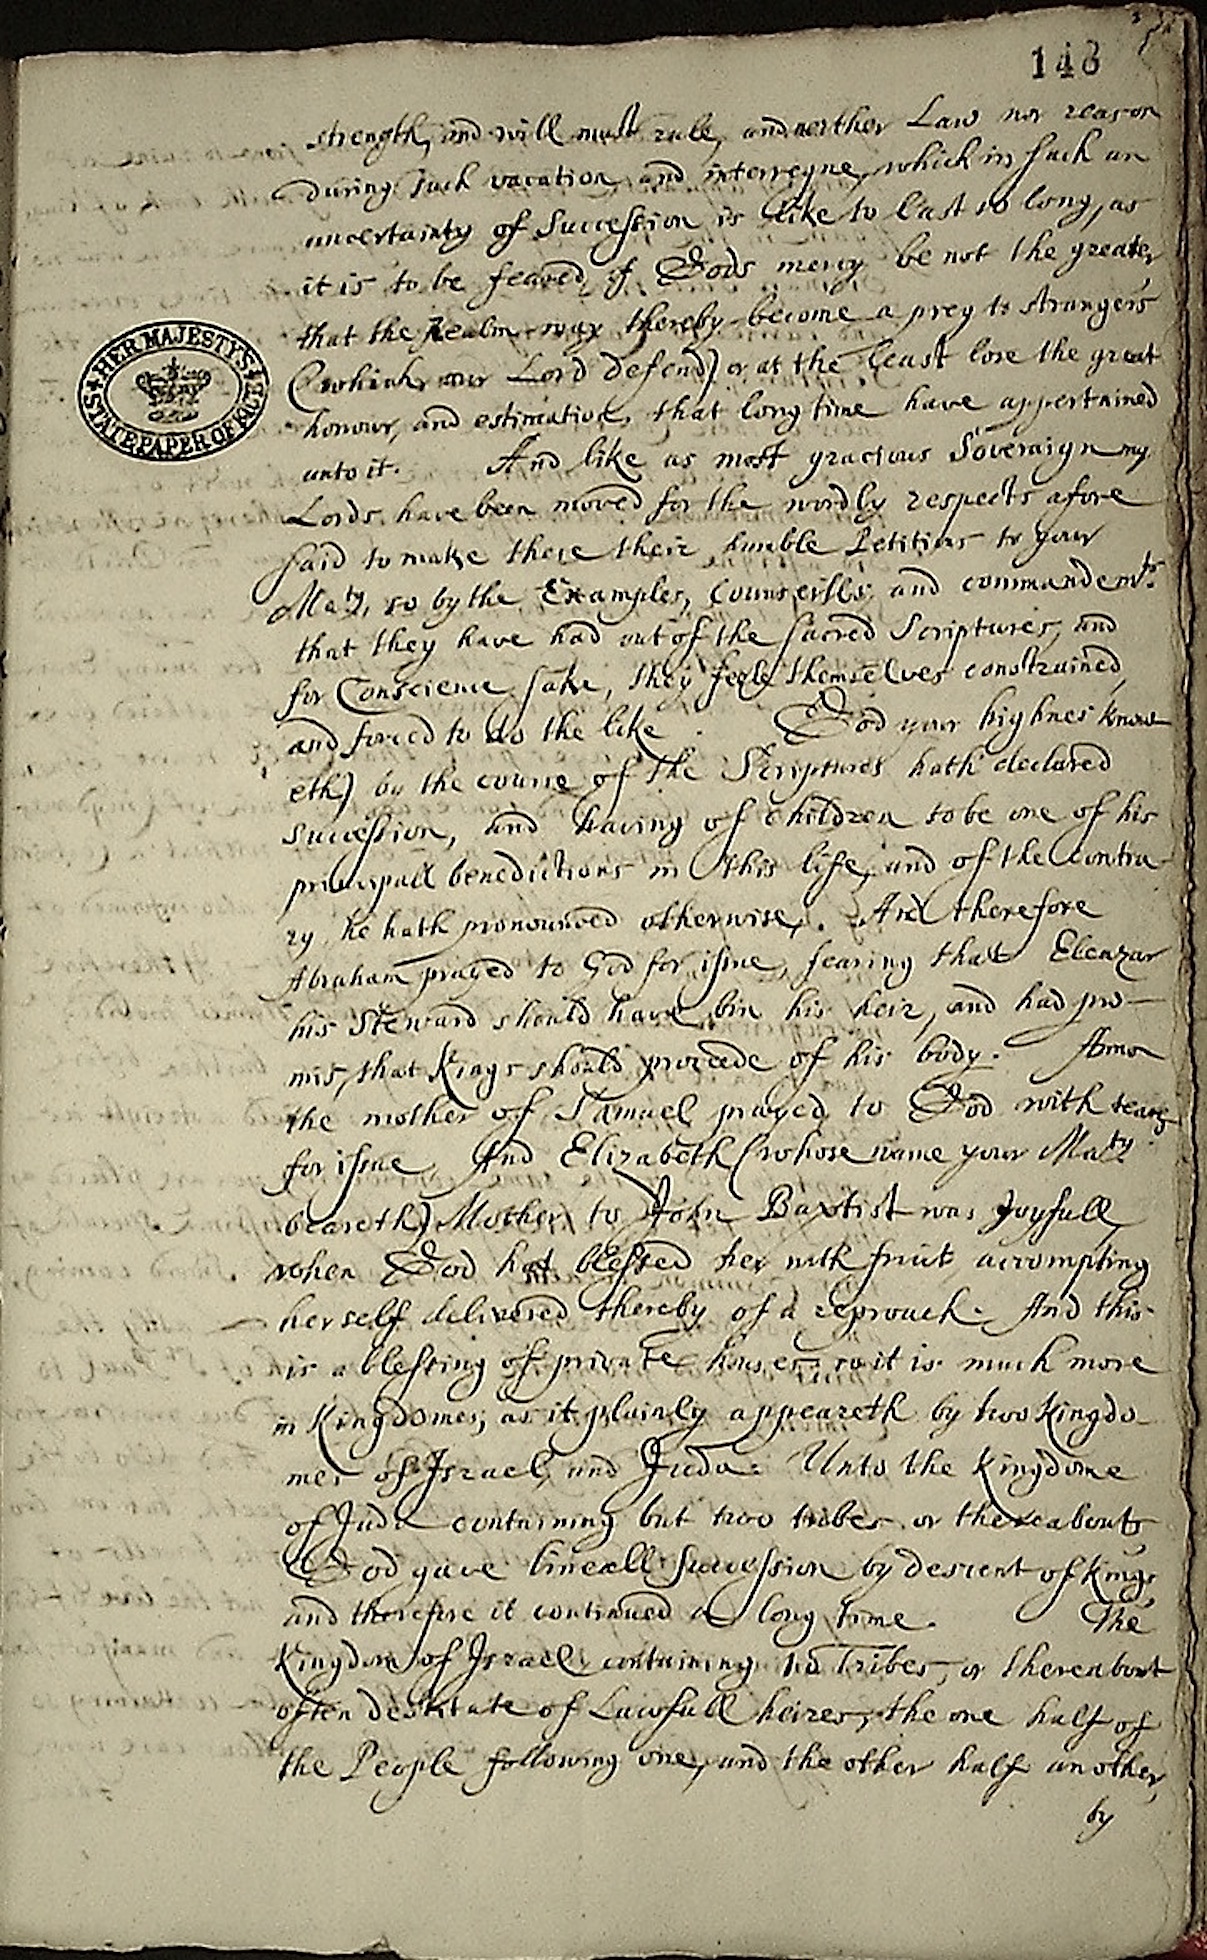 146
strength, and will must rule, and neither Law nor reason
during such vacation, and interregne, which in such an
uncertainty of Succession is like to last so long, as
it is to be feared, if Gods mercy be not the greater
that the Realm may thereby become a prey to strangers
(which our Lord defend) or at the least lose the great
honour, and estimation, that long time have appertained
unto it. And like as most gracious Soveraign my
Lords have been moved for the wordly respects afore
said to make these their humble Petitions to your
Maty, so by the Examples, Counseills, and commandemts
that they have had out of the sacred Scriptures, and
for Conscience sake, they feele themselves constrained,
and forced to do the like. God your highnes know
eth) by the course of the Scriptures hath declared
succession, and having of children to be one of his
principall benedictions in this life, and of the contra-
ry he hath pronounced otherwise. And therefore
Abraham prayed to God for issue, fearing that Eleazar
his Steward should have bin his heir, and had pro-
mis, that Kings should procede of his body. Anna
the mother of Samuel prayed to God with tears
for issue. And Elizabeth (whose name your Maty
beareth) Mother to John Baptist was Joyfull,
when God had blessed her with fruit accompting
herself delivered thereby of a reproach. And this
is a blessing of private houses so it is much more
in Kingdomes, as it plainly appeareth by two Kingdo-
mes of Israel, and Juda. Unto the Kingdome
of Juda containing but two tribes or thereabouts
God gave lineall Succession by descent of Kings
and therefore it continued a long time. The
Kingdom of Israel containing 10 Tribes, or thereabout
often destitute of Lawfull heires, the one half of
the People following one, and the other half another,
by
HER MAJESTY'S
STATE PAPER OFFICE